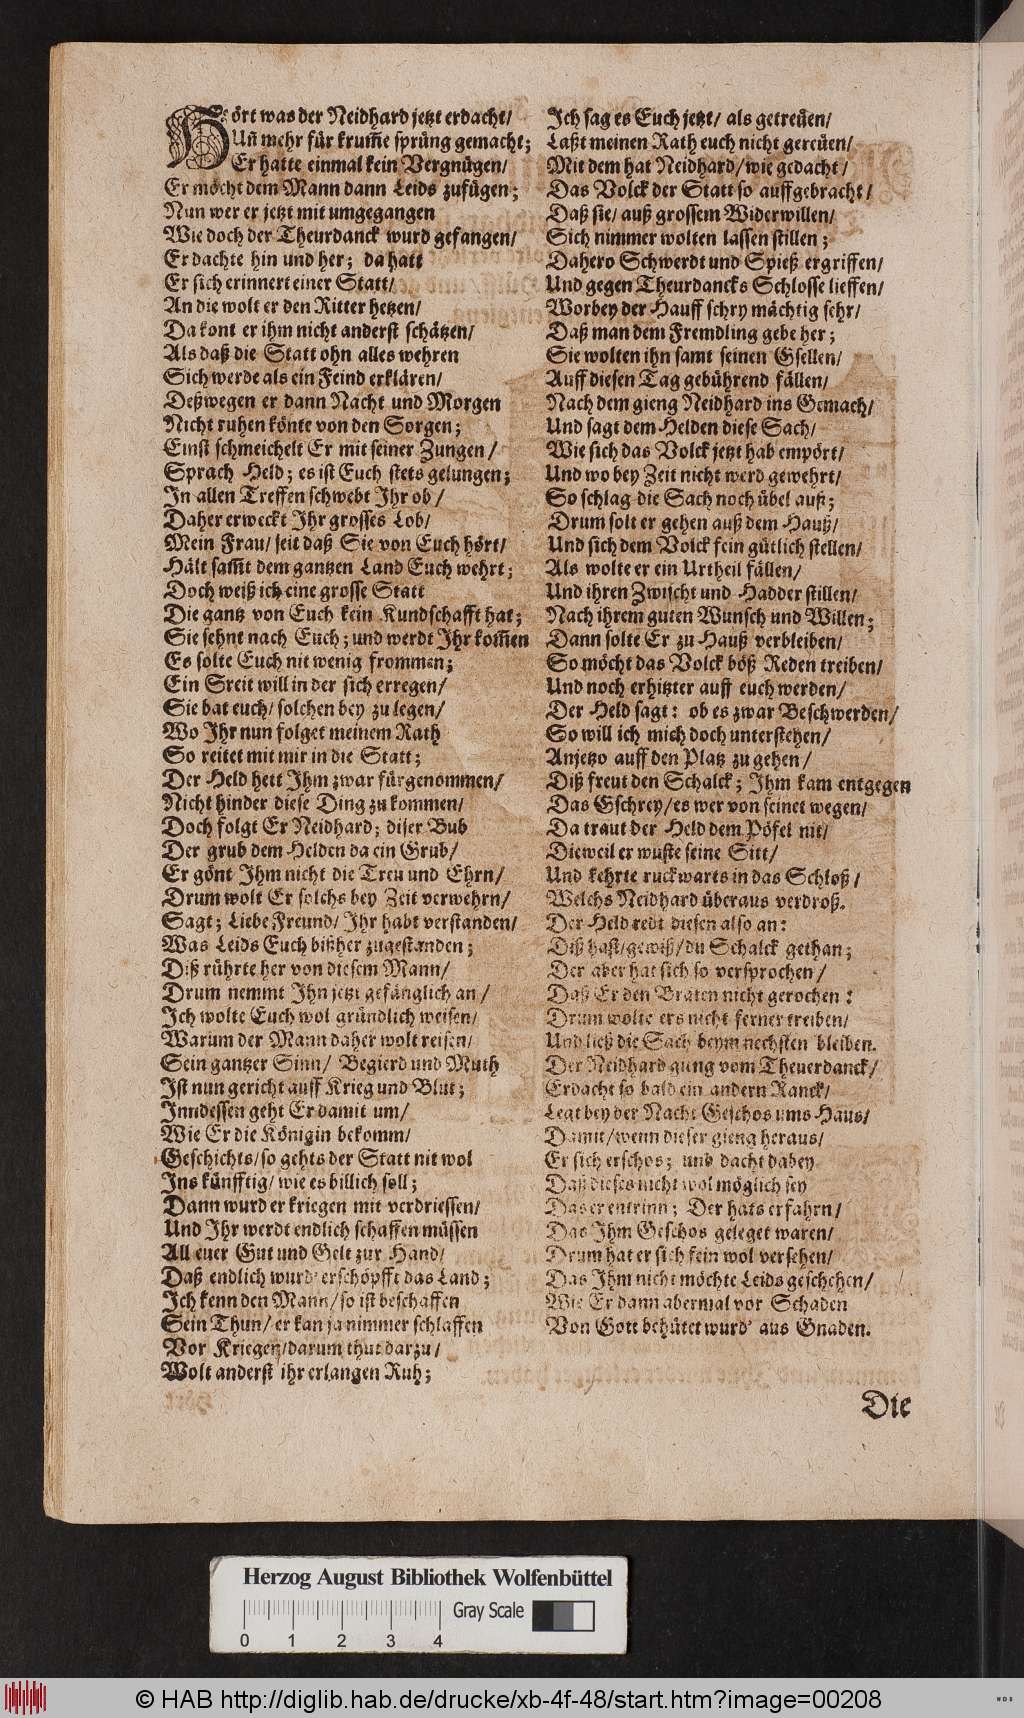 Hört was der Neidhard jetzt erdacht/
Uñ mehr für krum̃e sprüng gemacht;
Er hatte einmal kein Vergnügen/
Er möcht dem Mann dann Leids zufügen;
Nun wer er jetzt mit umgegangen
Wie doch der Theurdanck wurd gefangen/
Er dachte hin und her; da hatt
Er sich erinnert einer Statt/
An die wolt er den Ritter hetzen/
Da kont er ihm nicht anderst schätzen/
Als daß die Statt ohn alles wehren
Sich werde als ein Feind erklären/
Deßwegen er dann Nacht und Morgen
Nicht ruhen könte von den Sorgen;
Einst schmeichelt Er mit seiner Zungen/
Sprach Held; es ist Euch stets gelungen;
In allen Treffen schwebt Ihr ob/
Daher erweckt Ihr grosses Lob/
Mein Frau/ seit daß Sie von Euch hört/
Hält sam̃t dem gantzen Land Euch wehrt;
Doch weiß ich eine grosse Statt
Die gantz von Euch kein Kundschafft hat;
Sie sehnt nach Euch; und werdt Ihr kom̃en
Es solte Euch nit wenig frommen;
Ein Sreit will in der sich erregen/
Sie bat euch/ solchen bey zu legen/
Wo Ihr nun folget meinem Rath
So reitet mit mir in die Statt;
Der Held hett Ihm zwar fürgenommen/
Nicht hinder diese Ding zu kommen/
Doch folgt Er Neidhard; diser Bub
Der grub dem Helden da ein Grub/
Er gönt Ihm nicht die Treu und Ehrn/
Drum wolt Er solchs bey Zeit verwehrn/
Sagt; Liebe Freund/ Ihr habt verstanden/
Was Leids Euch bißher zugestanden;
Diß rührte her von diesem Mann/
Drum nemmt Ihn jetzt gefänglich an/
Ich wolte Euch wol gründlich weisen/
Warum der Mann daher wolt reisen/
Sein gantzer Sinn/ Begierd und Muth
Ist nun gericht auff Krieg und Blut;
Inndessen geht Er damit um/
Wie Er die Königin bekomm/
Geschichts/ so gehts der Statt nit wol
Ins künfftig/ wie es billich soll;
Dann wurd er kriegen mit verdriessen/
Und Ihr werdt endlich schaffen müssen
All euer Gut und Gelt zur Hand/
Daß endlich wurd' erschöpfft das Land;
Ich kenn den Mann/ so ist beschaffen
Sein Thun/ er kan ja nimmer schlaffen
Vor Kriegen/ darum thut darzu/
Wolt anderst ihr erlangen Ruh;
Ich sag es Euch jetzt/ als getreüen/
Laßt meinen Rath euch nicht gereüen/
Mit dem hat Neidhard/ wie gedacht/
Das Volck der Statt so auffgebracht/
Daß sie/ auß grossem Widerwillen/
Sich nimmer wolten lassen stillen;
Dahero Schwerdt und Spieß ergriffen/
Und gegen Theurdancks Schlosse lieffen/
Worbey der Hauff schry mächtig sehr/
Daß man dem Fremdling gebe her;
Sie wolten ihn samt seinen Gsellen/
Auff diesen Tag gebührend fällen/
Nach dem gieng Neidhard ins Gemach/
Und sagt dem Helden diese Sach/
Wie sich das Volck jetzt hab empört/
Und wo bey Zeit nicht werd gewehrt/
So schlag die Sach noch übel auß;
Drum solt er gehen auß dem Hauß/
Und sich dem Volck fein gütlich stellen/
Als wolte er ein Urtheil fällen/
Und ihren Zwischt und Hadder stillen/
Nach ihrem guten Wunsch und Willen;
Dann solte Er zu Hauß verbleiben/
So möcht das Volck böß Reden treiben/
Und noch erhitzter auff euch werden/
Der Held sagt: ob es zwar Beschwerden/
So will ich mich doch unterstehen/
Anjetzo auff den Platz zu gehen/
Diß freut den Schalck; Ihm kam entgegen
Das Gschrey/ es wer von seinet wegen/
Da traut der Held dem Pöfel nit/
Dieweil er wuste seine Sitt/
Und kehrte ruckwarts in das Schloß/
Welchs Neidhard überaus verdroß.
Der Held redt diesen also an:
Diß hast/ gewiß/ du Schalck gethan;
Der aber hat sich so versprochen/
Daß Er den Braten nicht gerochen:
Drum wolte ers nicht ferner treiben/
Und ließ die Sach beym nechsten bleiben.
Der Neidhard gieng vom Theuerdanck/
Erdacht so bald ein andern Ranck/
Legt bey der Nacht Geschos ums Haus/
Damit/ wenn dieser gieng heraus/
Er sich erschos; und dacht dabey
Daß dieses nicht wol möglich sey
Das er entrinn; Der hats erfahrn/
Das Ihm Geschos geleget waren/
Drum hat er sich fein wol versehen/
Das Ihm nicht möchte Leids geschehen/
Wie Er dann abermal vor Schaden
Von Gott behütet wurd' aus Gnaden.
Die
Herzog August Bibliothek Wolfenbüttel
Gray Scale
0 1 2 3 4
© HAB http://diglib.hab.de/drucke/xb-4f-48/start.htm?image=00208